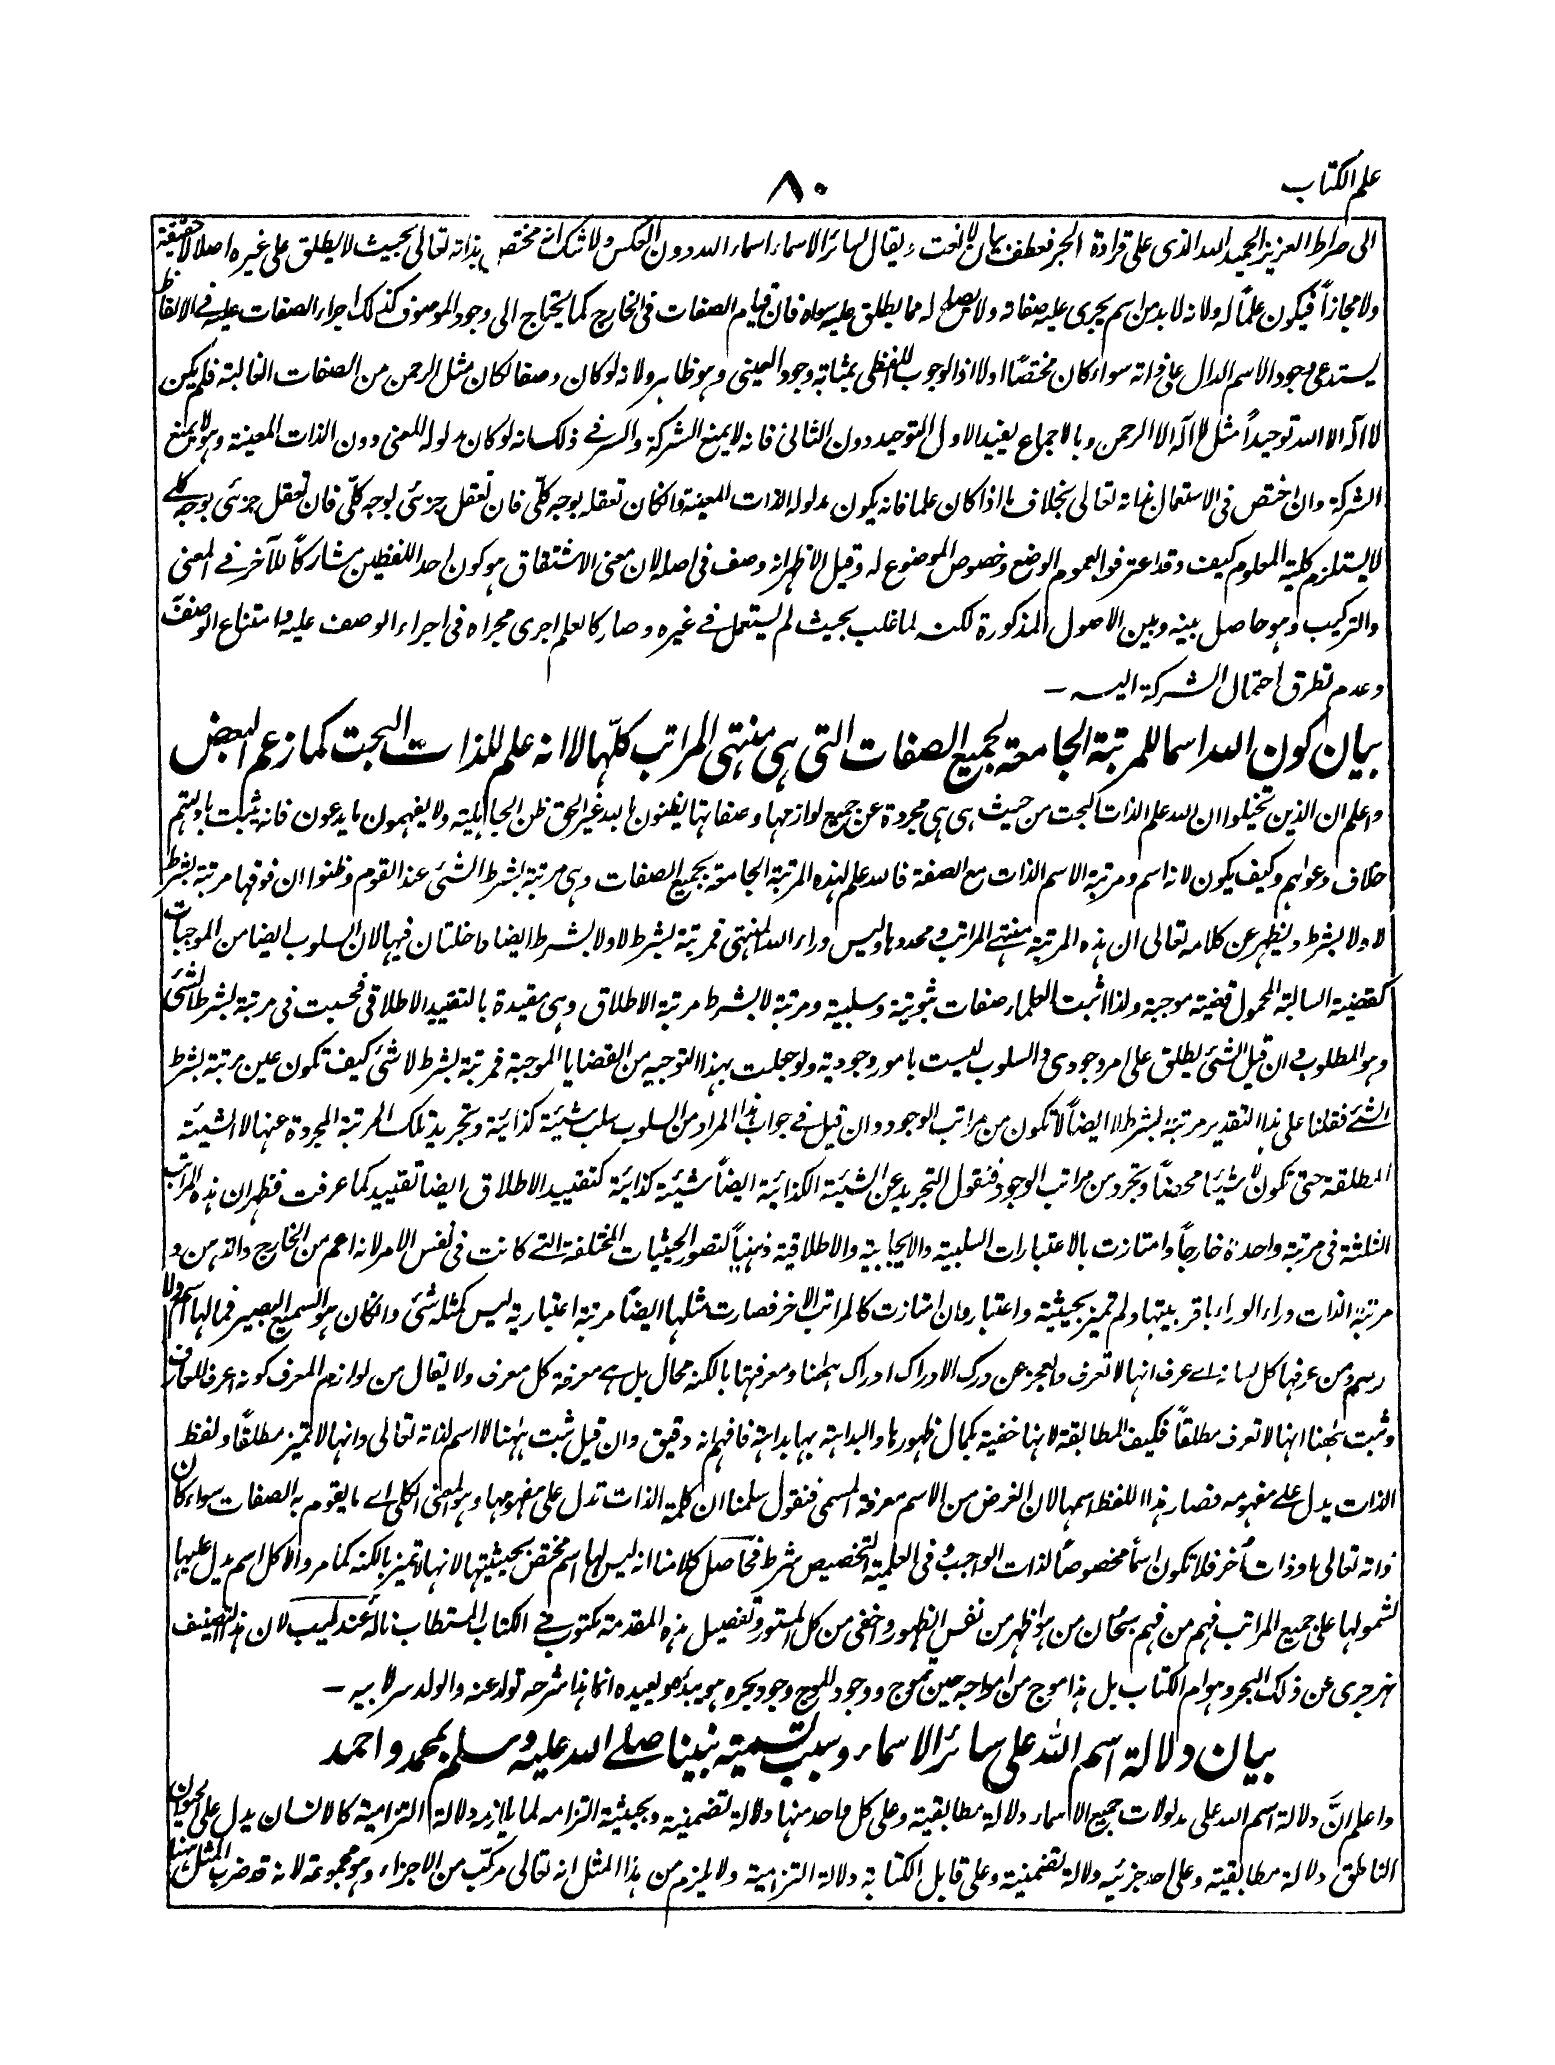 علم الکتاب
٨٠
الی صراط العزیز الحمید الله الذی علی قراءة الجر فعطف بیان لا نعت و یقال لسائر الاسماء اسماء الله دون العکس ولا شک انه مختص بذاته تعالی بحیث لا یطلق علی غیره اصلا لا حقیقة
ولا مجازاً فیکون علماً له ولانه لا بد من اسم یجری علیه صفاته ولا یصلح له مما یطلق علیه سواه فان قیام الصفات فی الخارج کما یحتاج الی وجود الموصوف کذلک اجراء الصفات علیه فی الالفاظ
یستدعی وجود الاسم الدال علی ذاته سواء کان مختصاً اولا اذ الوجوب اللفظی بمثابة وجود العینی وهو ظاهر ولانه لو کان وصفا لکان مثل الرحمن من الصفات الغالبة فلم یکن
لا اله الا الله توحیداً مثل لا اله الا الرحمن وبالاجماع یفید الاول التوحید دون الثانی فانه لا یمنع الشرکة والسر فی ذلک انه لو کان مدلوله المعنی دون الذات المعینة وهو لا یمنع
الشرکة وان اختص فی الاستعمال بذاته تعالی بخلاف ما اذا کان علما فانه یکون مدلوله الذات المعینة وانکان تعقله بوجه کلّی فان تعقل جزئی بوجه کلّی فان تعقل جزئی بوجه کلی
لا یستلزم کلیة المعلوم کیف وقد اعترفوا بعموم الوضع وخصوص الموضوع له وقیل الاظهر انه وصف فی اصله لان معنی الاشتقاق هو کون احد اللفظین مشارکاً للآخر فی المعنی
والترکیب وهو حاصل بینه وبین الاصول المذکورة لکنه لما غلب بحیث لم یستعمل فی غیره وصار کالعلم اجری مجراه فی اجراء الوصف علیه وامتناع الوصف
وعدم تطرق احتمال الشرکة الیه –
بیان کون الله اسما للمرتبة الجامعة لجمیع الصفات التی هی منتهی المراتب کلّها لا انه علم للذات البحت کما زعم البعض
واعلم ان الذین تخیلوا ان الله علم الذات البحت من حیث هی هی مجردة عن جمیع لوازمها وصفاتها یظنون بالله غیر الحق ظن الجاهلیة ولا یفهمون ما یدعون فانه یثبت بادلتهم
خلاف دعواهم وکیف یکون لانه اسم ومرتبة الاسم الذات مع الصفة فالله علم لهذه المرتبة الجامعة بجمیع الصفات وهی مرتبة بشرط الشئ عند القوم وظنوا ان فوقها مرتبة بشرط
لا ولا بشرط ویظهر عن کلامه تعالی ان هذه المرتبة منتهی المراتب ومحددها ولیس وراء الله المنتهی فمرتبة بشرط لا ولا بشرط ایضا داخلتان فیها لان السلوب ایضا من الموجبات
کقضیة السالبة المحمول قضیة موجبة ولذا اثبت العلماء صفات ثبوتیة وسلبیة ومرتبة لا بشرط مرتبة الاطلاق وهی مقیدة بالتقیید الاطلاقی فحسبت فی مرتبة بشرط الشئ
وهو المطلوب وان قیل الشئ یطلق علی امر وجودی والسلوب لیست بامور وجودیة ولو جعلت بهذا التوجیه من القضایا الموجبة فمرتبة بشرط لا شئ کیف تکون عین مرتبة بشرط
الشئ فقلنا علی هذا التقدیر مرتبة بشرط لا ایضاً لا تکون من مراتب الوجود وان قیل فی جواب هذا المراد من السلوب سلب شیئة کذائیة وتجرید تلک المرتبة المجردة عنها لا الشیئة
المطلقة حتی تکون لا شیئا محضاً وتخرج من مراتب الوجود فنقول التجرید عن الشیئة الکذائیة ایضاً شیئة کذائیة کتقیید الاطلاق ایضا تقیید کما عرفت فظهر ان هذه المراتب
الثلثة فی مرتبة واحدة خارجاً وامتازت بالاعتبارات السلبیة والایجابیة والاطلاقیة ذهنیاً لتصور الحیثیات المختلفة التی کانت فی نفس الامر لانه اعم من الخارج والذهن و
مرتبة الذات وراء الوراء باقربیتها ولم تمیز بحیثیة واعتبار وان امتازت کالمراتب الاخر فصارت مثلها ایضاً مرتبة اعتباریة لیس کمثله شئ وانکان هو السمیع البصیر فما لها اسم ولا
رسم ومن عرفها کل لسانه اے عرف انها لا تعرف والعجز عن درک الادراک ادراک ههنا ومعرفتها بالکنه محال بل هی معرفة کل معرف ولا یقال من لوازم المعرف کونه اعرف للعارف
وثبت ههنا انها لا تعرف مطلقاً فکیف المطابقة لانها خفیة بکمال ظهورها والبداهة بها بداهة فافهم انه دقیق وان قیل ثبت ههنا لا اسم لذاته تعالی وانها لا تمیز مطلقاً ولفظ
الذات یدل علی مفهومه فصار هذا اللفظ اسمها لان الغرض من الاسم معرفة المسمی فنقول سلمنا ان کلمة الذات تدل علی مفهومها وهو المعنی الکلی اے ما یقوم به الصفات سواء کان
ذاته تعالی او ذات أخر فلا تکون اسماً مخصوصاً لذات الواجب وفی العلمیة التخصیص شرط فحاصل کلامنا انه لیس لها اسم مختص بحیثیتها لانها لا تمیز بالکنه کما مر والا کل اسم یدل علیها
لشمولها علی جمیع المراتب فهم من فهم سبحان من هو اظهر من نفس الظهور واخفی من کل المستور وتفصیل هذه المقدمة مکتوب فی الکتاب المستطاب نالهٔ عندلیب لان هذا التصنیف
نهر جری عن ذلک البحر وهو ام الکتاب بل هذا موج من امواجه حین تموج ووجود الموج وجود بحره هو یبدئ ویعیده انما هذا شرحه تولد عنه والولد سر لابیه –
بیان دلالة اسم الله علی سائر الاسماء وسبب تسمیته نبینا صلی الله علیه وسلم بمحمد واحمد
واعلم انَّ دلالة اسم الله علی مدلولات جمیع الاسماء دلالة مطابقیة وعلی کل واحد منها دلالة تضمنیة وبحیثیة التزامه لما یلازمه دلالة التزامیة کالانسان یدل علی الحیوان
الناطق دلالة مطابقیة وعلی احد جزئیه دلالة تضمنیة وعلی قابل الکتابة دلالة التزامیة ولا یلزم من هذا المثل انه تعالی مرکب من الاجزاء وهو مجموعة لانه قد ضرب المثل ههنا